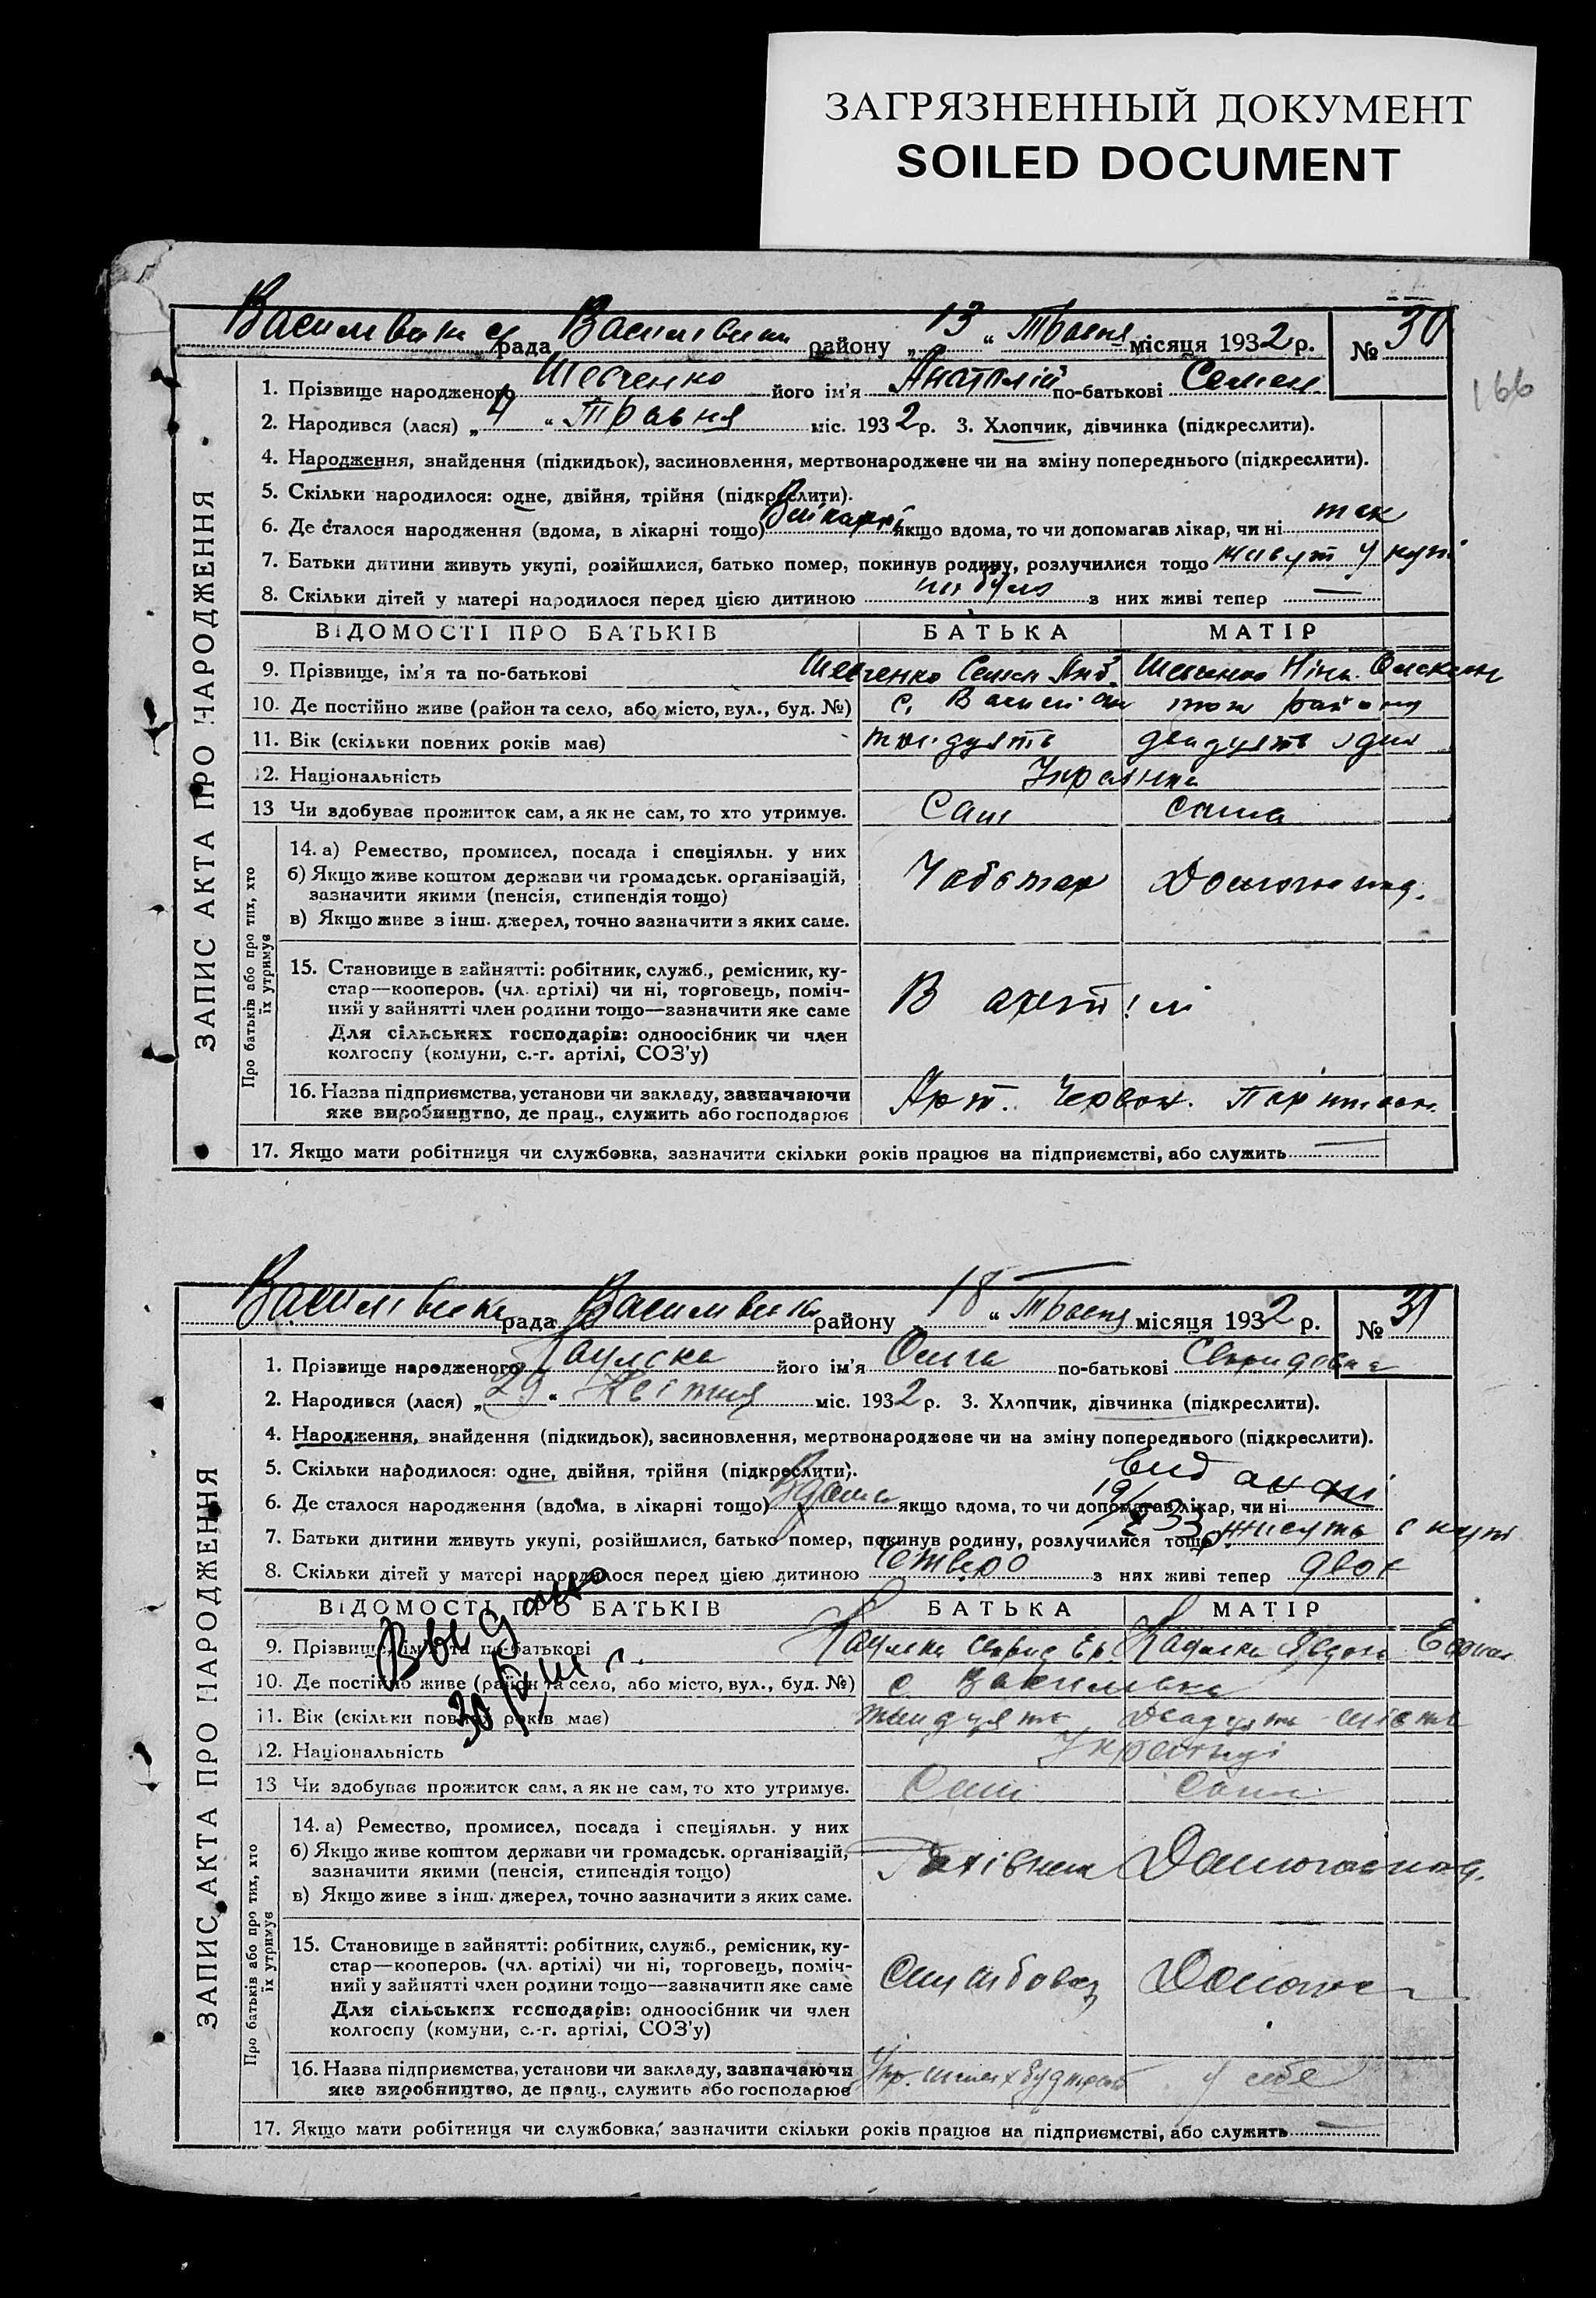 ЗАГРЯЗНЕННЫЙ ДОКУМЕНТ
SOILED DOCUMENT
166
рада району „13“ Травня місяця 1932 р. № 30
1. Прізвище народженого Шевченко його ім'я Анатолій по-батькові Семен
2. Народився (лася) „4“ Травня міс. 1932 р. 3. Хлопчик, дівчинка (підкреслити).
4. Народження, знайдення (підкидьок), засиновлення, мертвонароджене чи на зміну попереднього (підкреслити).
5. Скільки народилося: одне, двійня, трійня (підкреслити).
6. Де сталося народження (вдома, в лікарні тощо) якщо вдома, то чи допомагав лікар, чи ні так
7. Батьки дитини живуть укупі, розійшлися, батько помер, покинув родину, розлучилися тощо живут у купі
8. Скільки дітей у матері народилося перед цією дитиною не було з них живі тепер —
ВІДОМОСТІ ПРО БАТЬКІВ БАТЬКА МАТІР
9. Прізвище, ім'я та по-батькові Шевченко Семен Шевченко Ніна
10. Де постійно живе (район та село, або місто, вул., буд. №) с. тож району
11. Вік (скільки повних років має) тридцять двадцять один
12. Національність
13 Чи здобуває прожиток сам, а як не сам, то хто утримує. Сам сама
14. а) Ремество, промисел, посада і спеціяльн. у них
б) Якщо живе коштом держави чи громадськ. організацій,
зазначити якими (пенсія, стипендія тощо) Чоботар Домогоспод.
в) Якщо живе з інш. джерел, точно зазначити з яких саме.
15. Становище в зайнятті: робітник, служб., ремісник, ку-
стар—кооперов. (чл. артілі) чи ні, торговець, поміч-
ний у зайнятті член родини тощо—зазначити яке саме В артілі
Для сільських господарів: одноосібник чи член
колгоспу (комуни, с.-г. артілі, СОЗ'у)
16. Назва підприємства, установи чи закладу, зазначаючи
яке виробництво, де прац., служить або господарює Арт. Червон.
17. Якщо мати робітниця чи службовка, зазначити скільки років працює на підприємстві, або служить —
ЗАПИС АКТА ПРО НАРОДЖЕННЯ
Про батьків або про тих, хто
їх утримує
рада району 18 “ Травня місяця 1932 р. № 31
1. Прізвище народженого його ім'я Ольга по-батькові Свиридовна
2. Народився (лася) „29“ Квітня міс. 1932 р. 3. Хлопчик, дівчинка (підкреслити).
4. Народження, знайдення (підкидьок), засиновлення, мертвонароджене чи на зміну попереднього (підкреслити).
5. Скільки народилося: одне, двійня, трійня (підкреслити).
6. Де сталося народження (вдома, в лікарні тощо) Вдома якщо вдома, то чи допомагав лікар, чи ні
7. Батьки дитини живуть укупі, розійшлися, батько помер, покинув родину, розлучилися тощо живуть
8. Скільки дітей у матері народилося перед цією дитиною четверо з них живі тепер двоє
ВІДОМОСТІ ПРО БАТЬКІВ БАТЬКА МАТІР
9. Прізвище, ім'я та по-батькові Свирид
10. Де постійно живе (район та село, або місто, вул., буд. №) с. Василівка
11. Вік (скільки повних років має) тридцять двадцять
12. Національність Українці
13 Чи здобуває прожиток сам, а як не сам, то хто утримує. Сам Сама
14. а) Ремество, промисел, посада і спеціяльн. у них
б) Якщо живе коштом держави чи громадськ. організацій,
зазначити якими (пенсія, стипендія тощо) Домогоспод.
в) Якщо живе з інш. джерел, точно зазначити з яких саме.
15. Становище в зайнятті: робітник, служб., ремісник, ку-
стар—кооперов. (чл. артілі) чи ні, торговець, поміч-
ний у зайнятті член родини тощо—зазначити яке саме Службовец
Для сільських господарів: одноосібник чи член
колгоспу (комуни, с.-г. артілі, СОЗ'у)
16. Назва підприємства, установи чи закладу, зазначаючи
яке виробництво, де прац., служить або господарює у себе
17. Якщо мати робітниця чи службовка, зазначити скільки років працює на підприємстві, або служить —
ЗАПИС АКТА ПРО НАРОДЖЕННЯ
Про батьків або про тих, хто
їх утримує
Выдано